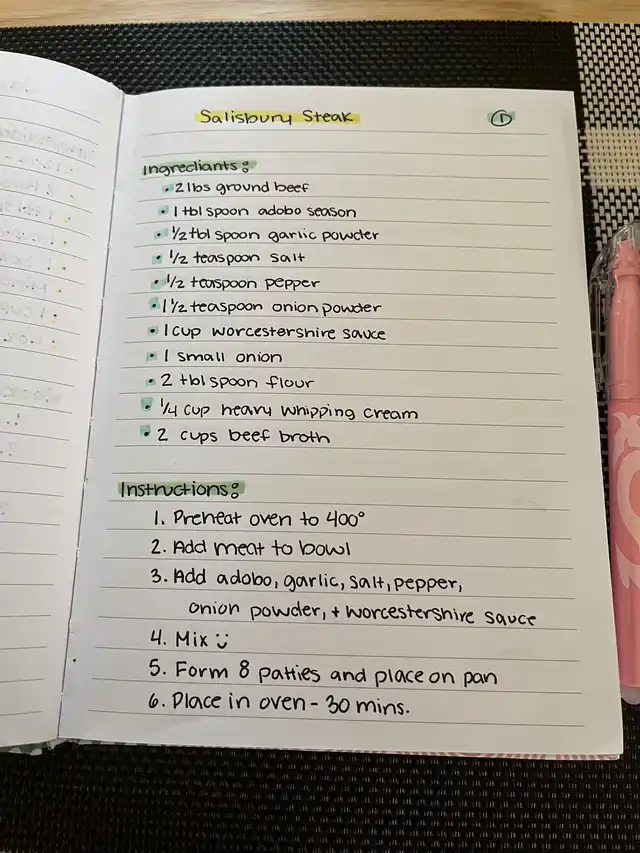 Salisbury Steak ①
Ingrediants:
• 2 lbs ground beef
• 1 tbl spoon adobo season
• 1/2 tbl spoon garlic powder
• 1/2 teaspoon salt
• 1/2 teaspoon pepper
• 1 1/2 teaspoon onion powder
• 1 cup worcestershire sauce
• 1 small onion
• 2 tbl spoon flour
• 1/4 cup heavy whipping cream
• 2 cups beef broth
Instructions:
1. Preheat oven to 400°
2. Add meat to bowl
3. Add adobo, garlic, salt, pepper,
onion powder, + worcestershire sauce
4. Mix :)
5. Form 8 patties and place on pan
6. Place in oven - 30 mins.